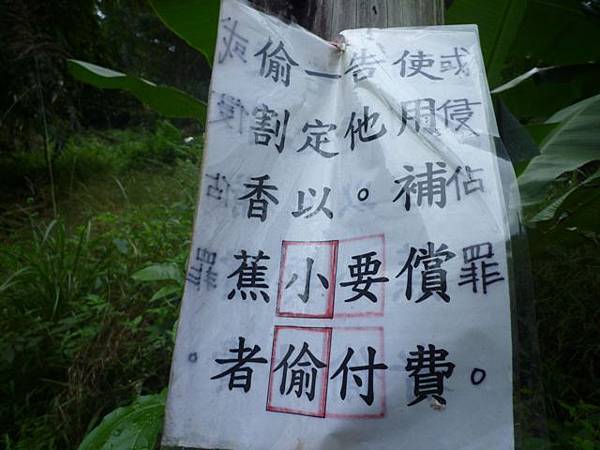 偷割香蕉者
一定以小偷
告他。要付
使用補償費。
或侵佔罪